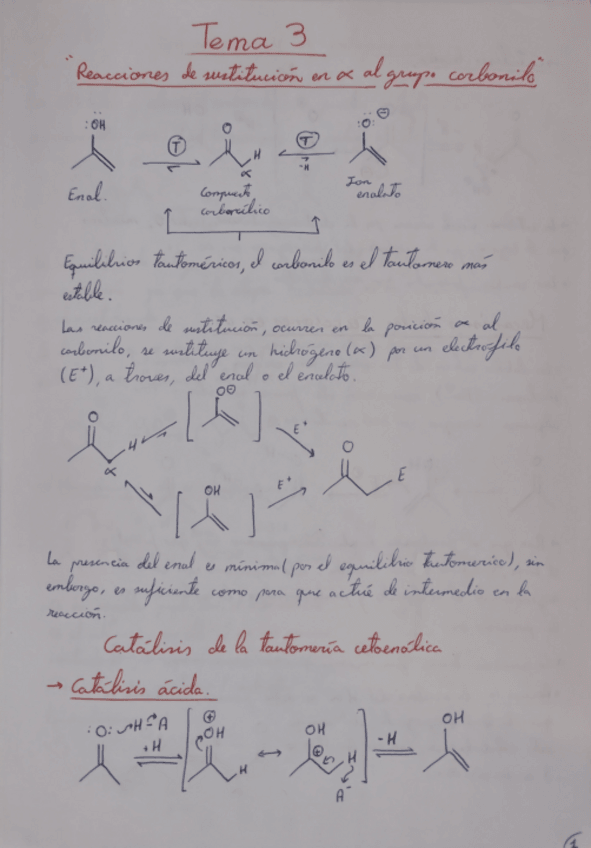 Tema 3
"Reacciones de sustitución en α al grupo carbonilo"
:OH
O
H
α
:O: ⊖
T
T
-H
Enol.
Compuesto
carbonílico
Ion
enolato
Equilibrios tautoméricos, el carbonilo es el tautomero más
estable.
Las reacciones de sustitución, ocurren en la posición α al
carbonilo, se sustituye un hidrógeno (α) por un electrófilo
(E⁺), a traves, del enol o el enolato.
O
H
α
O⊖
E⁺
OH
E⁺
O
E
La presencia del enol es mínima (por el equilibrio tautomerico), sin
embargo, es suficiente como para que actúe de intermedio en la
reacción.
Catálisis de la tautomería cetoenólica
→ Catálisis ácida.
:O: H-A
+H
⊕
OH
H
↔
OH
⊕
H
A⁻
-H
OH
1